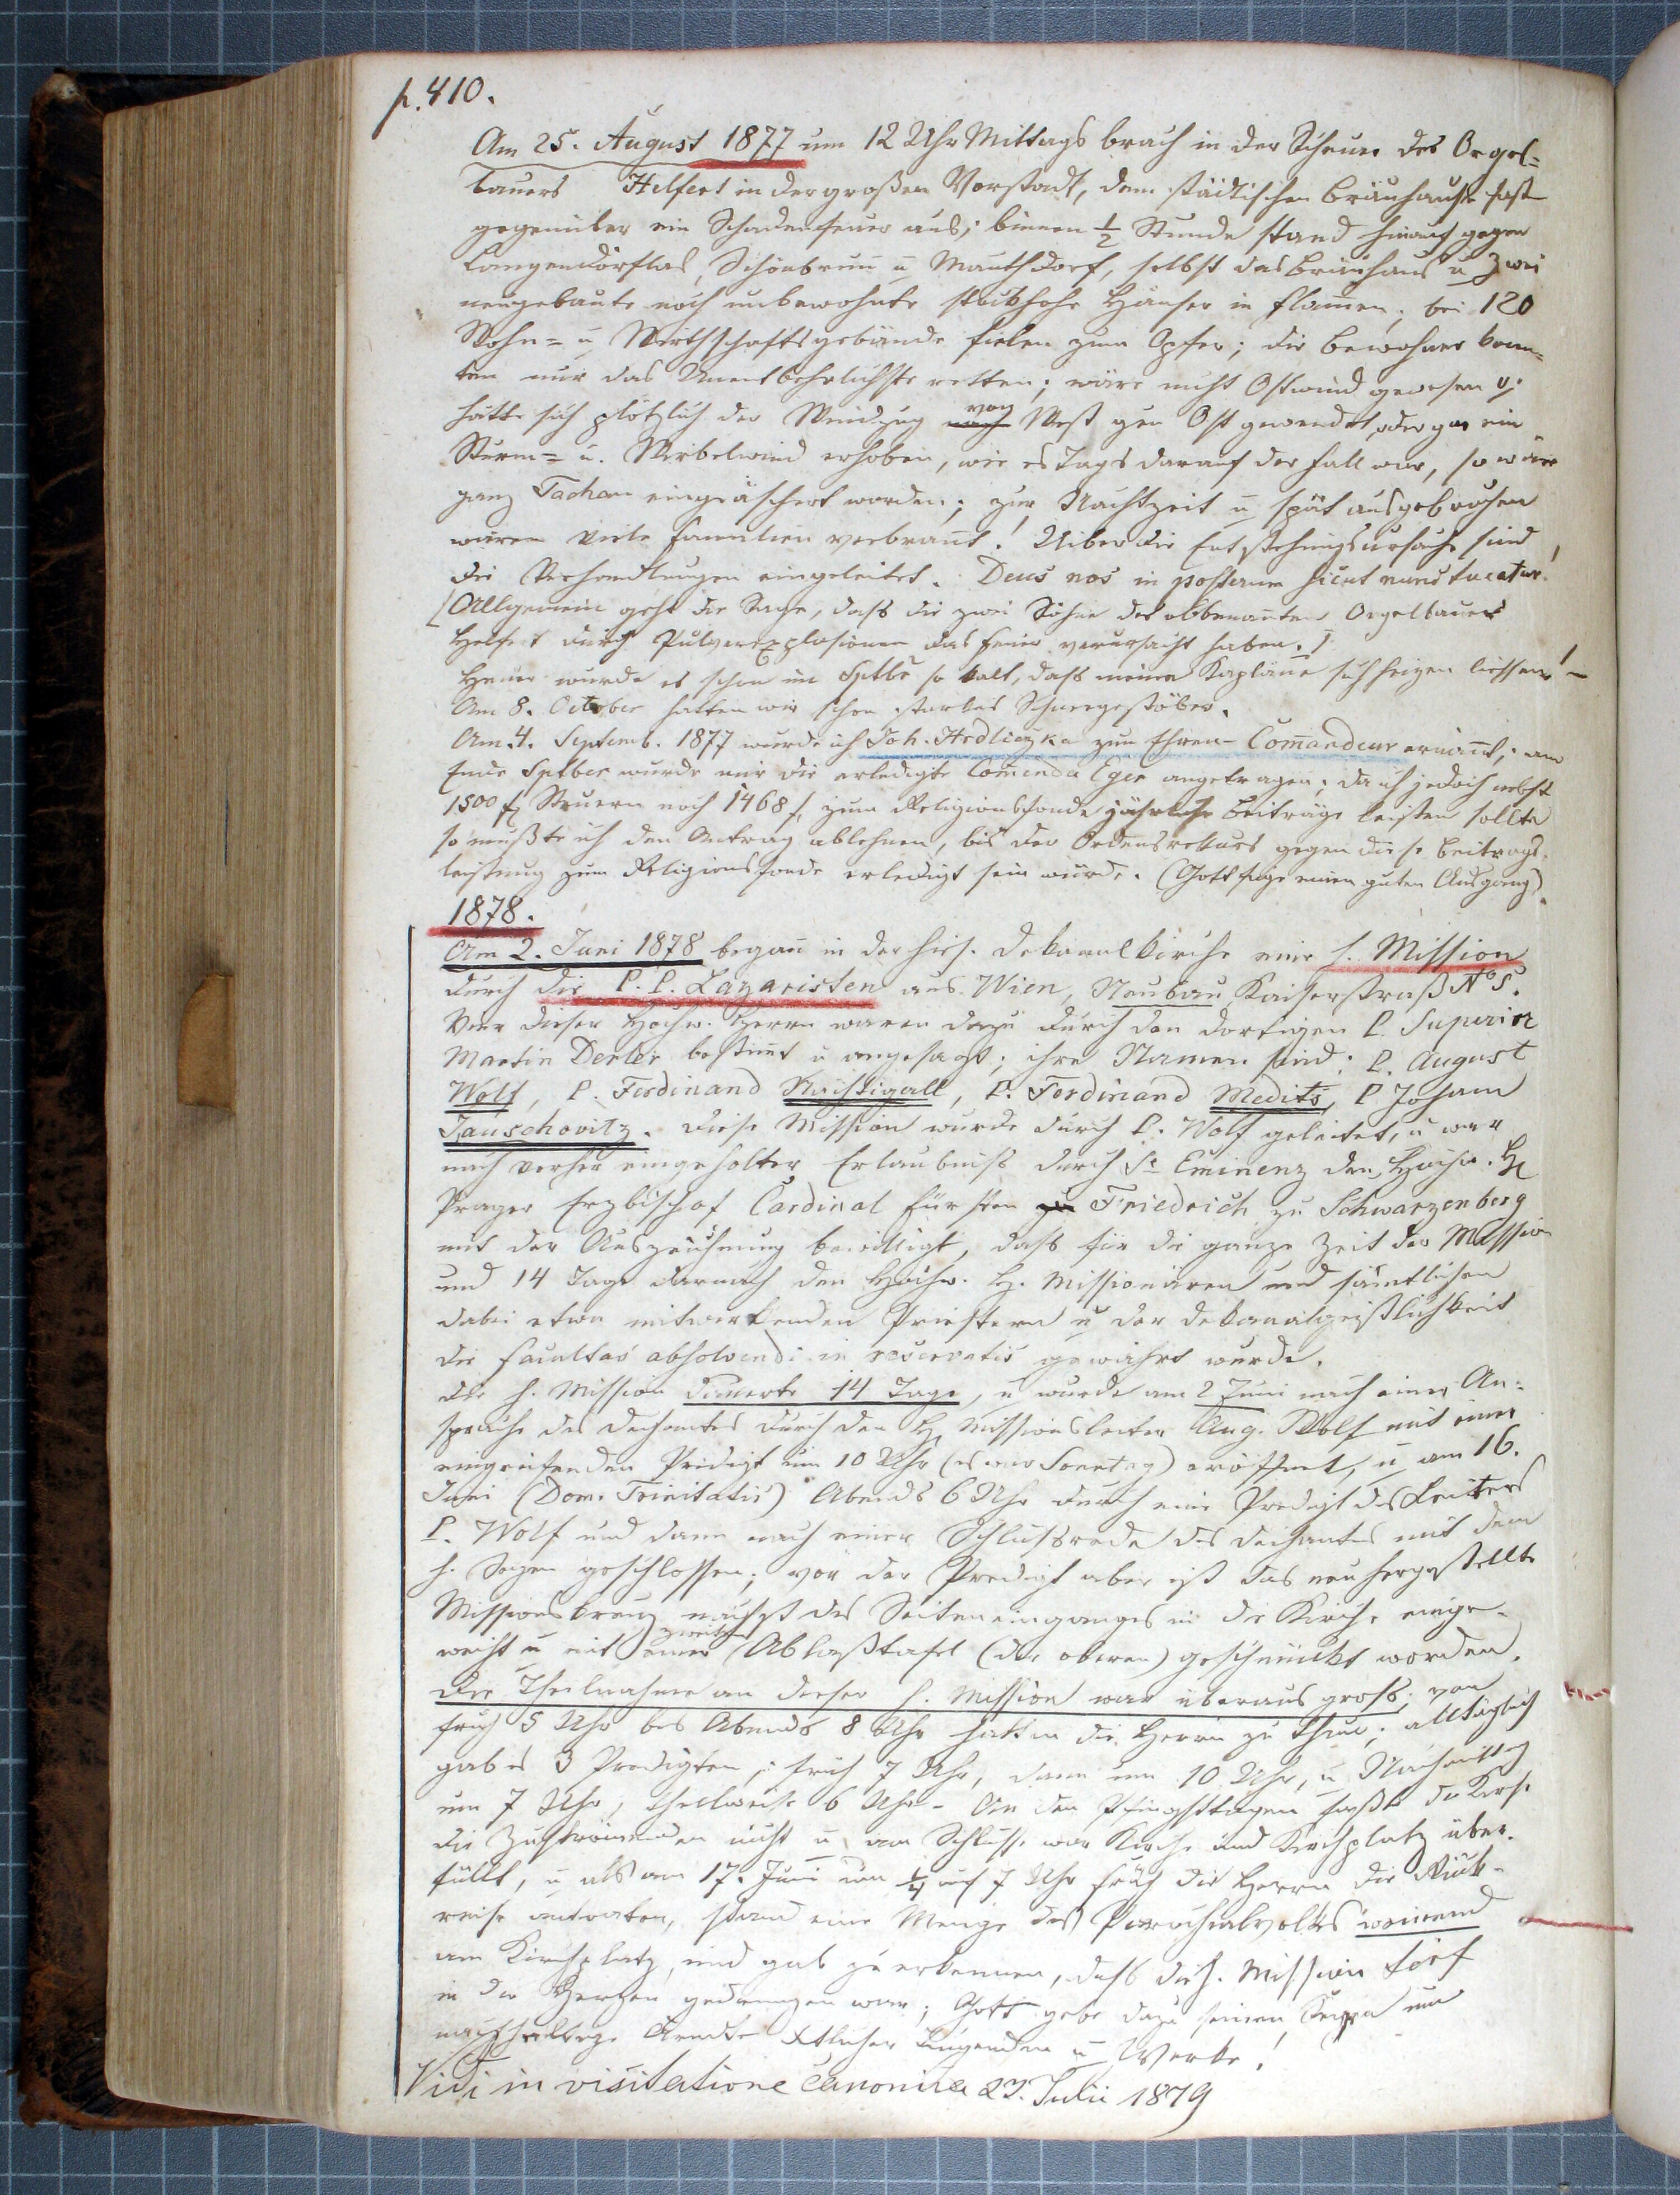 p. 410.
Am 25. August 1877 um 12 Uhr Mittags brach in der Scheuer des Orgel=
bauers Helfert in der großen Vorstadt, dem städtischen Bräuhause fast
gegenüber ein Schadenfeuer aus; binnen ½ Stunde stand hinauf gegen
Langendörflas, Schönbrunn u Mauthdorf, selbst das Bräuhaus u zwei
neugebaute noch unbewohnte stockhohe Häuser in Flamen; bei 120
Wohn= u Wirthschaftsgebäude fielen zum Opfer; die Bewohner konn=
ten nur das Unentbehrlichste retten; wäre nicht Ostwind gewesen u.
hätte sich plötzlich der Windzug von West gen Ost gewendet, oder gar ein
Sturm= u. Wirbelwind erhoben, wie es Tags darauf der Fall war, so wäre
ganz Tachau eingeäschert worden; zur Nachtzeit u spät ausgebrochen
wären viele Familien verbrannt! Uiber die Entstehungsursache sind
die Verhandlungen eingeleitet. Deus nos in posterum sicut nunc tueatur!
(Allgemein geht die Sage, daß die zwei Söhne des obbenannten Orgelbauers
Helfert durch Pulverexplosionen das Feuer verursacht haben.)
Heuer wurde es schon im Sptbr so kalt, daß meine Kapläne sich heizen liessen! –
Am 8. October hatten wir schon starkes Schneegestöber.
Am 4. Septemb. 1877 wurde ich Joh. Hrdliczka zum Ehren-Comandeur ernannt; am
Ende Sptber wurde mir die erledigte Comenda Eger angetragen; da ich jedoch nebst
1500 f Steuern noch 1468 f, zum Religionsfonde jährliche Beiträge leisten sollte
so mußte ich den Antrag ablehnen, bis der Ordensrekurs gegen diese Beitrags-
leistung zum Religionsfonde erledigt sein würde. (Gott füge einen guten Ausgang).
1878.
Am 2. Juni 1878 begann in der hies. Dekanalkirche eine h. Mission
durch die P. P. Lazaristen aus Wien, Neubau Kaiserstraß No 5.
Vier dieser Hochw. Herrn waren dazu durch den dortigen P. Superior
Martin Derler bestimt u angesagt; ihre Namen sind: P. August
Wolf, P. Ferdinand Nachtigall, P. Ferdinand Medits, P Johann
Tauschovitz. Diese Mission wurde durch P. Wolf geleitet, u war
nach vorher eingeholter Erlaubniß durch Se Eminenz den Hochw. H
Prager Erzbischof Cardinal Fürsten Friedrich zu Schwarzenberg
mit der Auszeichnung bewilligt, daß für die ganze Zeit der Mission
und 14 Tage darnach den Hochw. H. Missionären und sämtlichen
dabei etwa mitwirkenden Priestern u der Dekanalgeistlichkeit
die facultas absolvendi in reservatis gewährt wurde.
Die h. Mission dauerte 14 Tage, u wurde am 2 Juni nach einer An=
sprache des Dechantes durch den H Missionsleiter Aug. Wolf mit einer
eingreifenden Predigt um 10 Uhr (es war Sonntag) eröffnet, u am 16.
Juni (Dom. Trinitatis) Abends 6 Uhr durch eine Predigt des Leiters
P. Wolf und dann nach einer Schlußrede des Dechantes mit dem
h. Segen geschlossen; vor der Predigt aber ist das neu hergestellte
Missionskreuz nächst des Seiteneinganges in die Kirche einge-
weiht u mit einer zweiten Ablaßtafel (der oberen) geschmückt worden.
Die Theilnahme an dieser h. Mission war überaus groß; von
früh 5 Uhr bis Abends 8 Uhr hatten die Herrn zu thun; alltäglich
gab es 3 Predigten, früh 7 Uhr, dann um 10 Uhr, u Nachmittag
um 7 Uhr, theilweise 6 Uhr - An den Pfingsttagen faßte die Kirche
die Zuströmenden nicht u am Schlusse war Kirche und Kirchplatz über-
füllt, u als am 17. Juni um ¼ auf 7 Uhr früh die Herrn die Rück-
reise antraten, stand eine Menge des Parochialvolkes weinend
am Kirchplatz, und gab zu erkennen, daß die h. Mission tief
in die Herzen gedrungen war; Gott gebe dazu seinen Segen um
nachhaltige Früchte Tugenden u Werke!
Vidi in visitatione canonica 27. Julii 1879